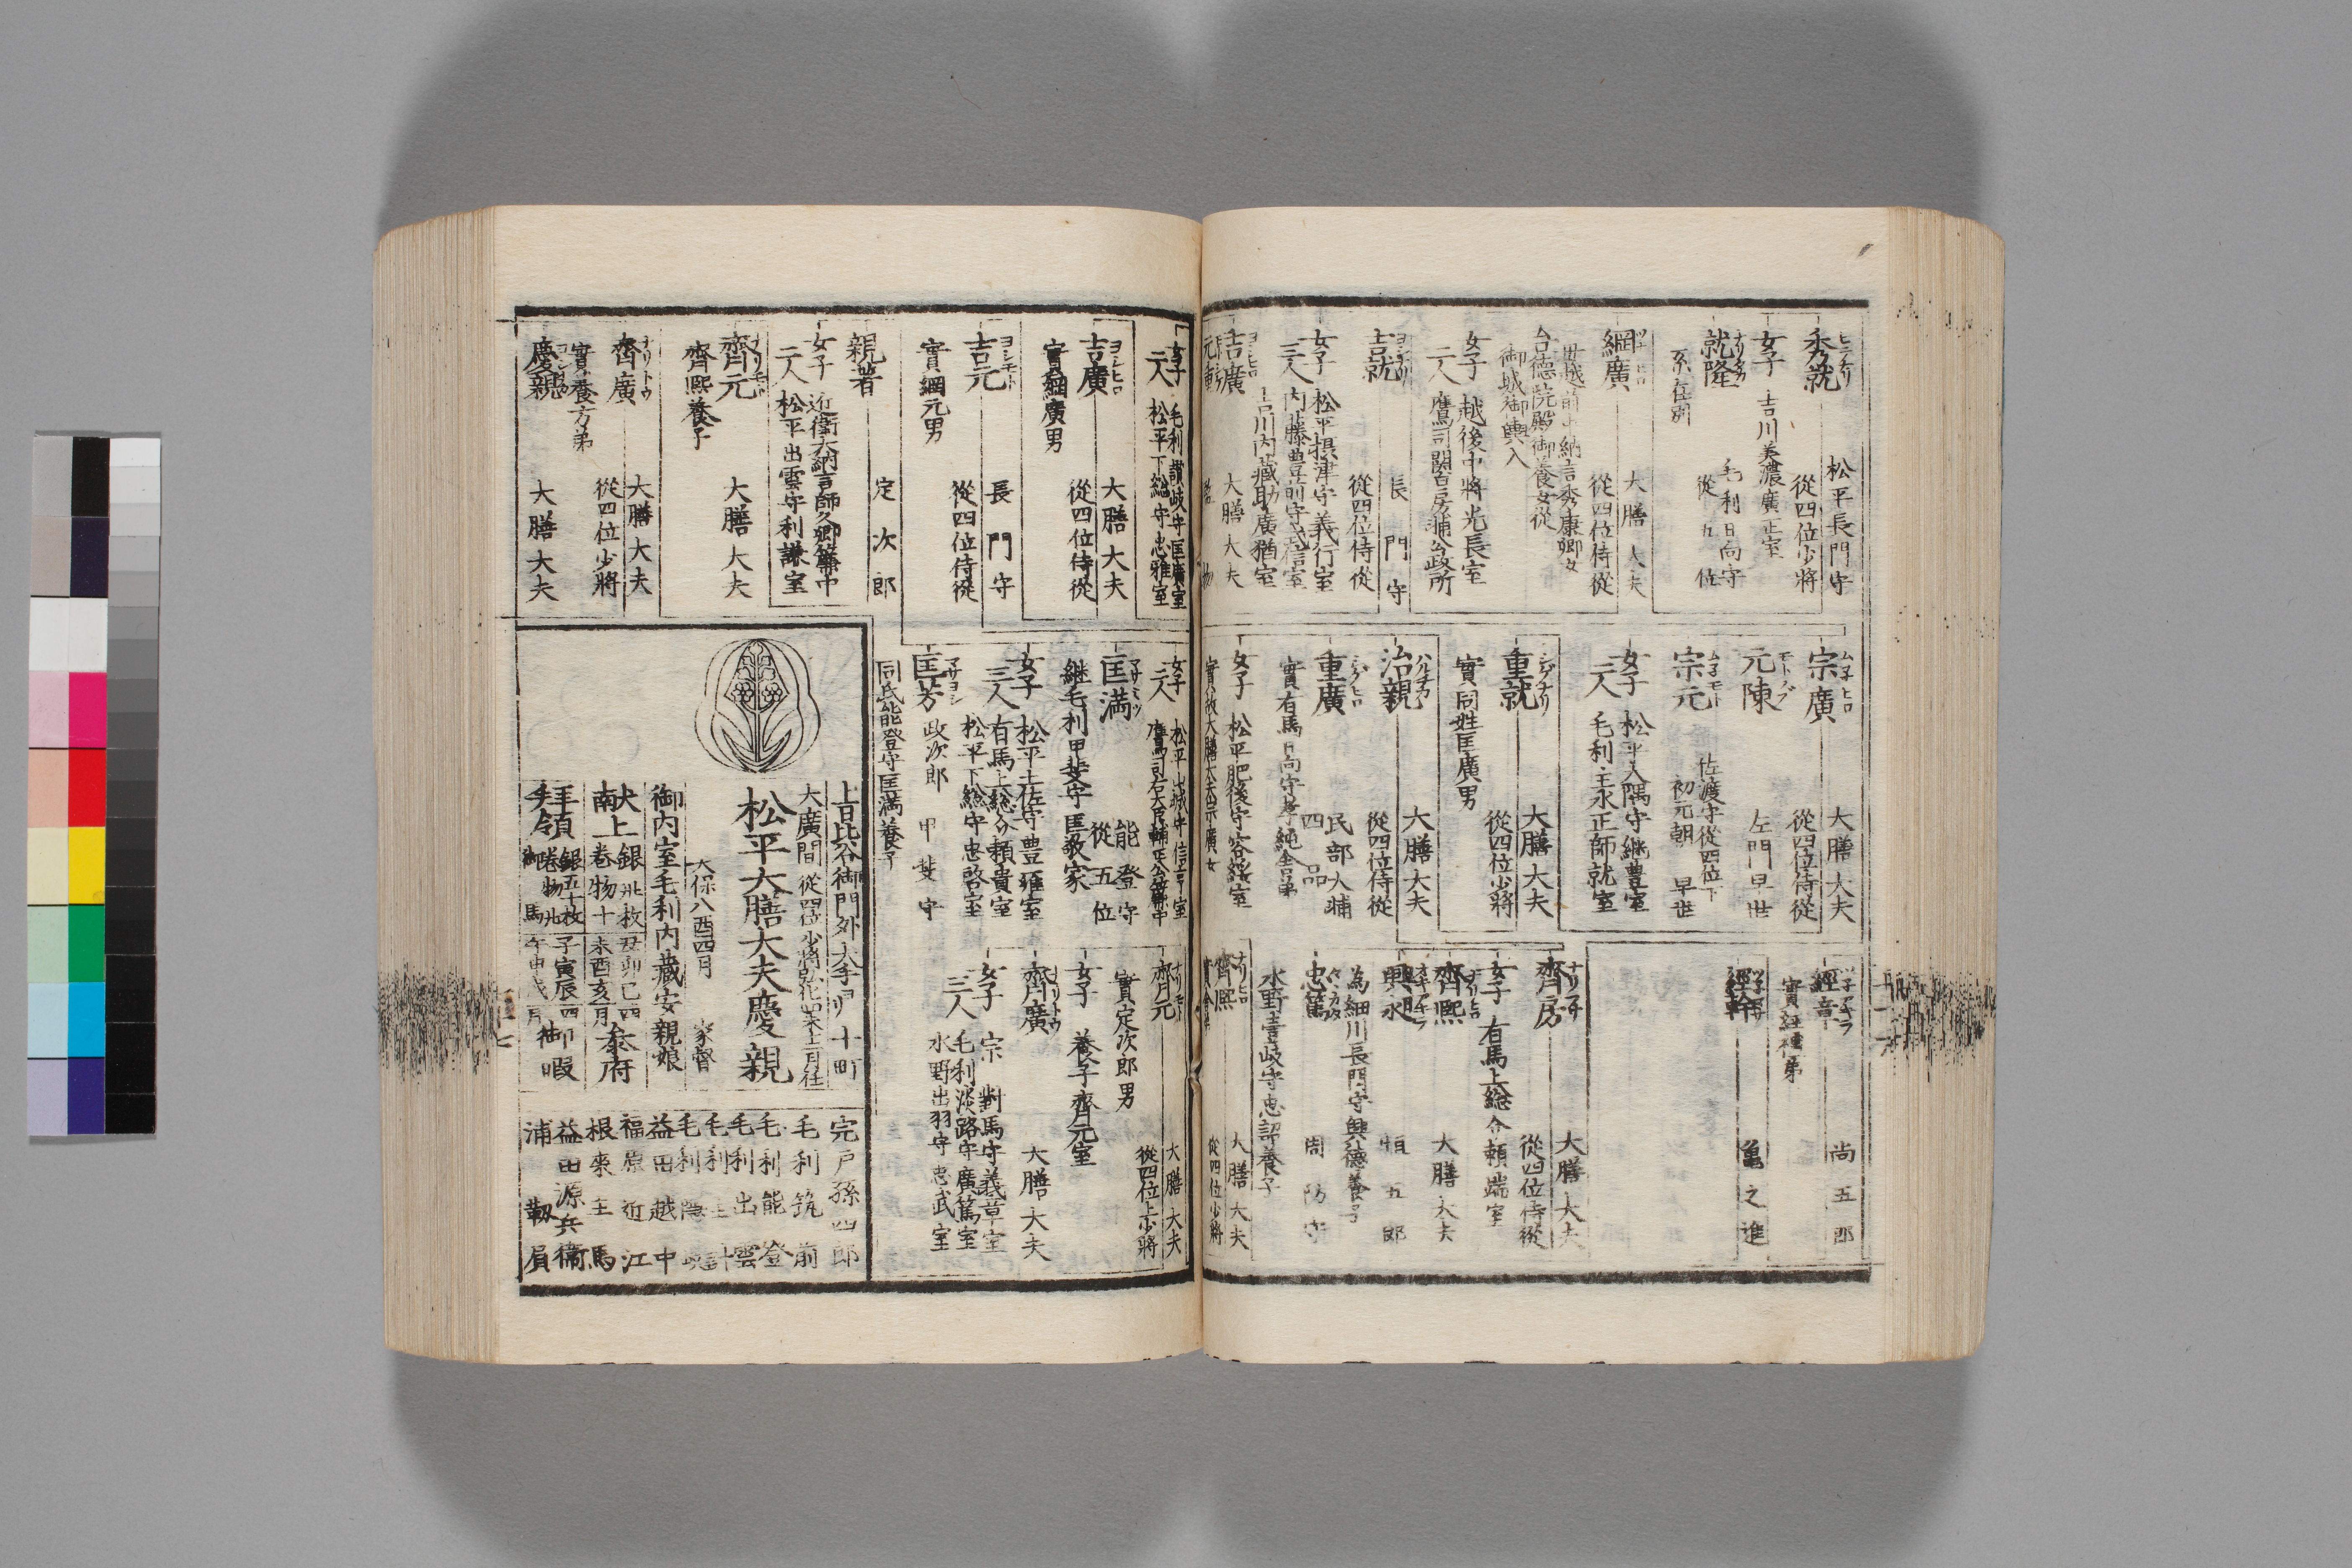 秀就
ヒデナリ
松平長門守
從四位少將
女子
吉川美濃廣正室
就隆
ナリタカ
毛利日向守
從五位
系在別
綱廣
ツナヒロ
大膳大夫
從四位侍從
母越前中納言秀康卿女
台德院殿御養女從
御城御輿入
女子
二人
越後中將光長室
鷹司關白房輔公政所
吉就
ヨシナリ
長門守
從四位侍從
女子
三人
松平摂津守義行室
内藤豊前守弌信室
吉川内藏助廣猶室
吉廣
ヨシヒロ
大膳大夫
元重
宗廣
ムネヒロ
大膳大夫
從四位侍從
元陳
モトノブ
左門早世
宗元
ムネモト
佐渡守從四位下
初元朝 早世
女子
二人
松平大隅守継豊室
毛利主水正師就室
重就
シゲナリ
大膳大夫
從四位少將
實同姓匡廣男
治親
ハルチカ
大膳大夫
從四位侍從
重廣
シゲヒロ
民部大輔
四品
實有馬日向守孝純舎弟
女子
松平肥後守容綏室
實故大膳大夫宗廣女
經章
尚五郎
經幹
龜之進
齊房
ナリフサ
大膳大夫
從四位侍從
女子
有馬上総介頼端室
齊熙
ナリヒロ
大膳大夫
興昶
恒五郎
為細川長門守興德養子
忠篤
周防守
水野壹岐守忠詔養子
齊熙
ナリヒロ
大膳大夫
從四位少將
女子
二人
毛利讃岐守匡廣室
松平下総守忠雅室
吉廣
ヨシヒロ
大膳大夫
從四位侍從
實綱廣男
吉元
ヨシモト
長門守
從四位侍從
實綱元男
親著
定次郎
女子
二人
近衛大納言師久卿簾中
松平出雲守利謙室
齊元
ナリモト
大膳大夫
齊熙養子
齊廣
ナリトウ
大膳大夫
從四位少將
實養方弟
慶親
ヨシチカ
大膳大夫
女子
二人
松平出羽守信亨室
鷹司右大臣輔平公簾中
匡満
マサミツ
能登守
從五位
継毛利甲斐守匡敬家
女子
三人
松平土佐守豊雍室
有馬上総介頼貴室
松平下総守忠啓室
匡芳
マサヨシ
政次郎
甲斐守
同氏能登守匡満養子
齊元
ナリモト
大膳大夫
從四位上少將
實定次郎男
女子
養子齊元室
齊廣
ナリトウ
大膳大夫
女子
三人
宗對馬守義章室
毛利淡路守廣篤室
水野出羽守忠武室
上日比谷御門外大手ヨリ十町
大廣間 從四位少將
松平大膳大夫慶親
天保八酉四月 家督
御内室毛利内藏安親娘
献上 銀卅枚 丑卯巳四
巻物十 未酉亥月 参府
拜領 銀五十枚 子寅辰四
巻物卅 御馬 午申戌月 御暇
完戸孫四郎
毛利筑前
毛利能登
毛利出雲
毛利主計
毛利隠岐
益田越中
福原近江
根来主馬
益田源兵衞
浦靱負